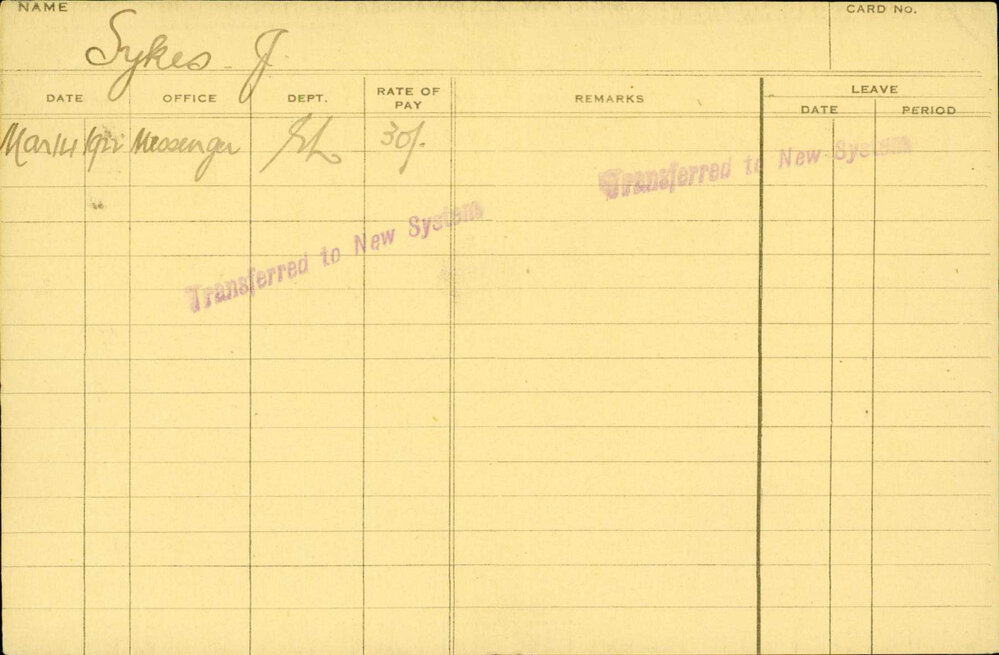 NAME
CARD No.
Sykes J.
DATE OFFICE DEPT. RATE OF PAY REMARKS LEAVE
DATE PERIOD
Mar 14 1922 Messenger 30/-
Transferred to New System
Transferred to New System